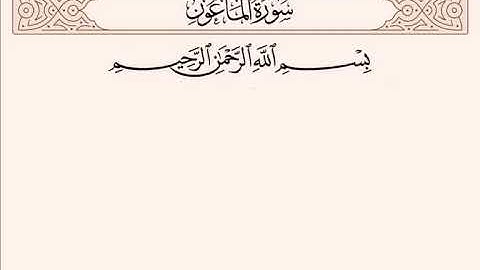 سُورَةُ المَاعُونِ
بِسْمِ ٱللَّهِ ٱلرَّحْمَٰنِ ٱلرَّحِيمِ